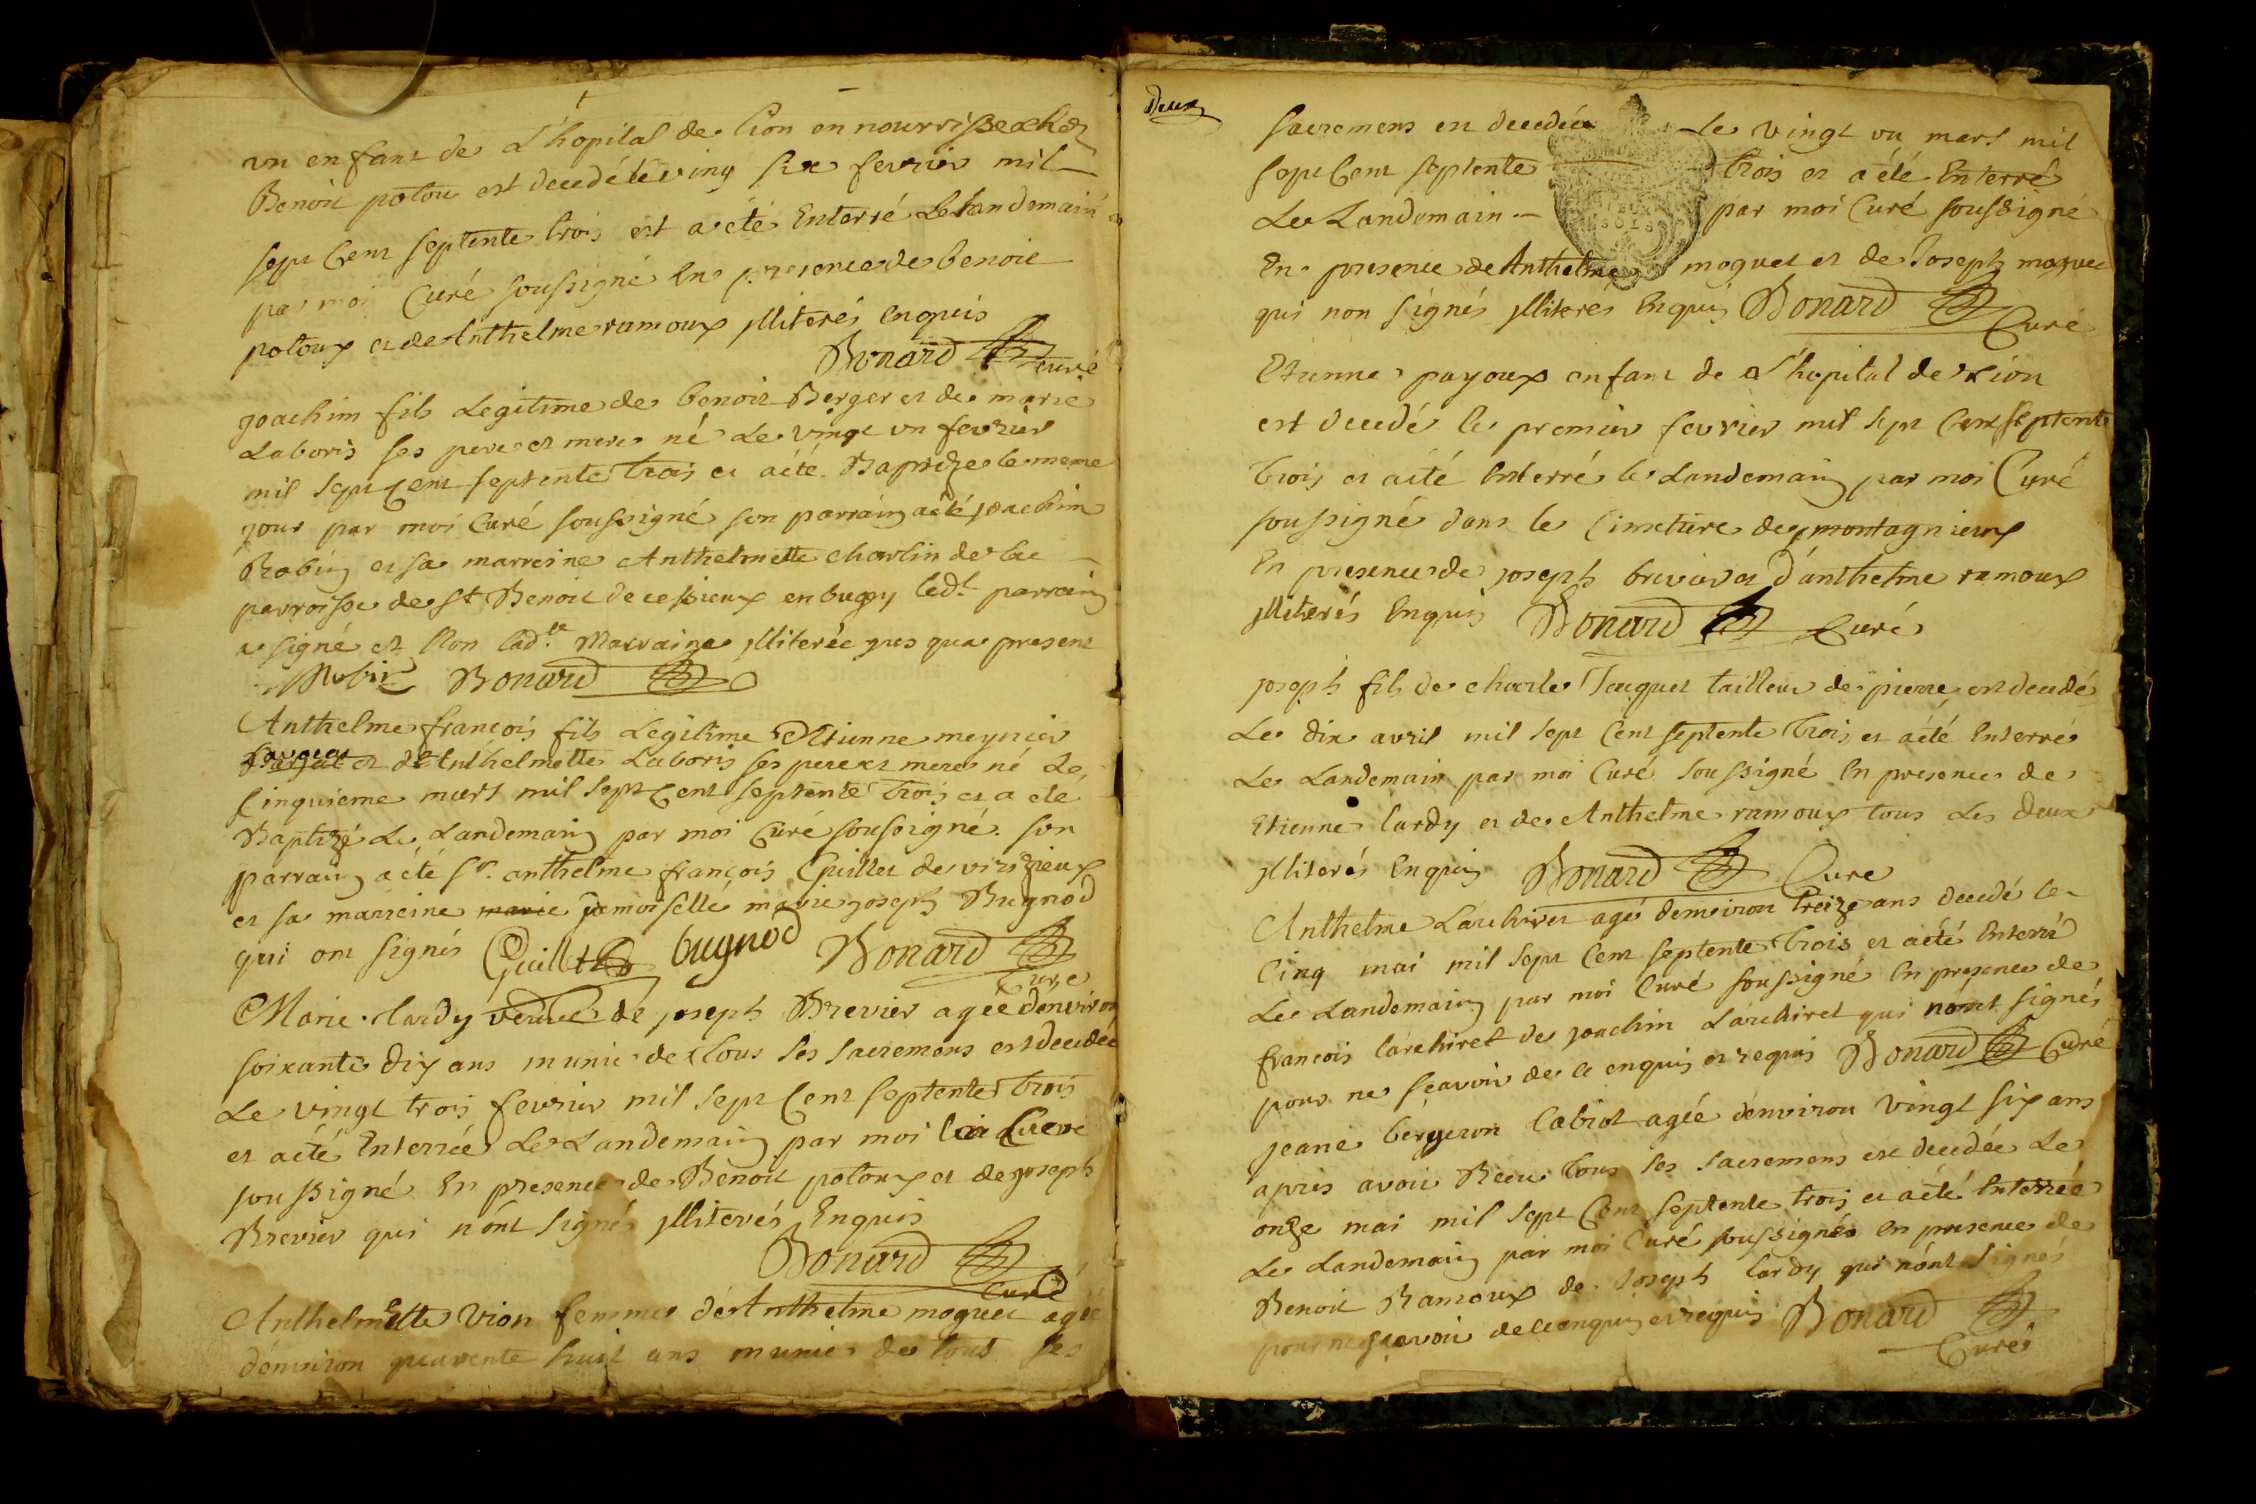 un enfant de L'hopital de Lion en nourrisse chez
Benoit potou est decedé le ving six fevrier mil
sept Cent septente trois est a eté Enterré Le Landemain
par moi Curé soussigné En presence de benoit
potoux et de Anthelme ramoux jlliterés Enquis
Bonard Curé
joachim fils Legitime de benoit Berger et de marie
Laboris ses pere et mere né Le vingt un fevrier
mil sept Cent septente trois et a eté Baptize le meme
jour par moi Curé soussigné son parrain a eté joachim
Robin et sa marreine Anthelmette charlin de
parroisse de St Benoit de cessieux en bugey led.t parrain
a signé et Non lad.te Marraine jlliterée jus qua present
Robin Bonard
Anthelme françois fils Legitime Etienne meynier
et d'Anthelmette Laboris ses pere et mere né Le
Cinquieme mars mil sept Cent septente trois et a ete
Baptizé Le Landemain par moi Curé soussigné. son
parrain a eté Sr. anthelme françois Guillet de virizieux
et sa marreine marie demoisellé marie joseph Bugnod
qui ont signés Guillet bugnod Bonard
Curé
Marie lardy veuve de joseph Brevier agée denviron
soixante dix ans munie de tous ses sacremens est decedée
Le vingt trois fevrier mil sept Cent septente trois
et a eté Enterrée Le Landemain par moi Curé
soussigné En presence de Benoit potoux et de joseph
Brevier qui n'ont signés jlliterés Enquis
Bonard
Curé
Anthelmette Vion femme de Anthelme moquet agée
d'environ quarente huit ans munie de tous ses
Deux
sacremens est decedée le vingt un mars mil
sept Cent septente trois et a eté Enterré
Le Landemain par moi Curé soussigné
En presence de Anthelme moquet et de Joseph moquet
qui non signés jlliterés Enquis Bonard
Curé
Etienne payoux enfant de L'hopital de Lion
est decedé le premier fevrier mil sept Cent septente
trois et a eté Enterré le Landemain par moi Curé
soussigné dans le Cimetiere de montagnieux
En presence de joseph brevier et d'anthelme ramoux
jlliterés Enquis Bonard Curé
joseph fils de charle Jaquet tailleur de pierre est decedé
Le dix avril mil sept Cent septente trois et a eté Enterré
Le Landemain par moi Curé soussigné En presence de
Etienne lardy et de Anthelme ramoux tous Les deux
jlliterés Enquis Bonard Curé
Anthelme Larchiret agé denviron treize ans decedé le
Cinq mai mil sept Cent septente trois et a eté Enterré
Le Landemain par moi Curé soussigné En presence de
françois larchiret de joachim Larchiret qui n'ont signés
pour ne sçavoir de ce enquis et requis Bonard Curé
jeane bergeron labiot agée d'environ vingt six ans
après avoir Reçu tous ses sacremens est decedée Le
onze mai mil sept Cent septente trois et a eté Enterrée
Le Landemain par moi Curé soussigné En presence de
Benoit Ramoux de Joseph lardy qui n'ont signés
pour ne sçavoir de ce enquis et requis Bonard
Curé